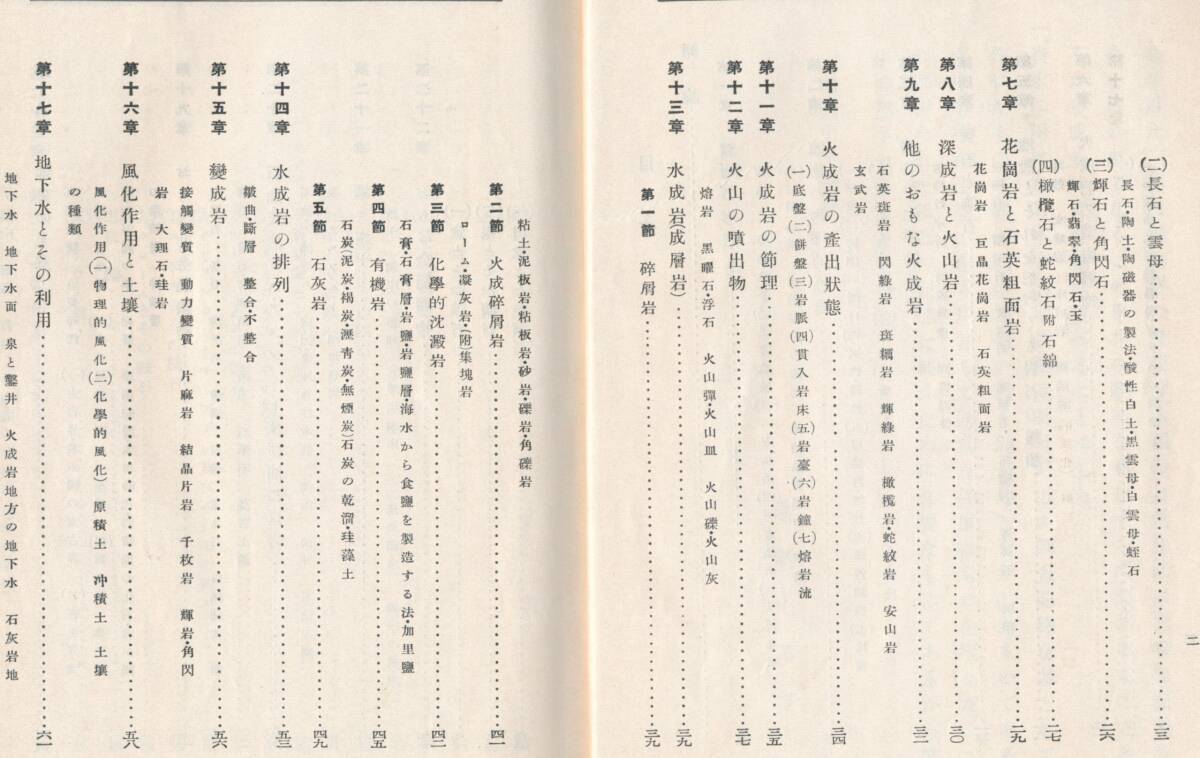 二
(二)長石と雲母……………二三
長石・陶土・陶磁器の製法・酸性白土・黒雲母・白雲母・蛭石
(三)輝石と角閃石……………二六
輝石・翡翠・角閃石・玉
(四)橄欖石と蛇紋石附石綿……………二七
第七章　花崗岩と石英粗面岩……………二九
花崗岩　巨晶花崗岩　石英粗面岩
第八章　深成岩と火山岩……………三〇
第九章　他のおもな火成岩……………三二
石英斑岩　閃綠岩　斑糲岩・輝綠岩　橄欖岩・蛇紋岩　安山岩
玄武岩
第十章　火成岩の產出狀態……………三四
(一)底盤(二)餅盤(三)岩脈(四)貫入岩床(五)岩臺(六)岩鐘(七)熔岩流
第十一章　火成岩の節理……………三五
第十二章　火山の噴出物……………三七
熔岩　黑曜石・浮石　火山彈・火山皿　火山礫・火山灰
第十三章　水成岩(成層岩)……………三九
第一節　碎屑岩……………三九
粘土・泥板岩・粘板岩・砂岩・礫岩・角礫岩
第二節　火成碎屑岩……………四一
ローム・凝灰岩・(附集塊岩
第三節　化學的沈澱岩……………四二
石膏・石膏層・岩鹽・岩鹽層・海水から食鹽を製造する法・加里鹽
第四節　有機岩……………四五
石炭(泥炭・褐炭・瀝靑炭・無煙炭)石炭の乾溜・珪藻土
第五節　石灰岩……………四九
第十四章　水成岩の排列……………五三
皺曲・斷層　整合・不整合
第十五章　變成岩……………五六
接觸變質　動力變質　片麻岩　結晶片岩　千枚岩　輝岩・角閃
岩　大理石・珪岩
第十六章　風化作用と土壤……………五八
風化作用(一物理的風化(二)化學的風化)　原積土　冲積土　土壤
の種類
第十七章　地下水とその利用……………六一
地下水　地下水面　泉と鑿井　火成岩地方の地下水　石灰岩地